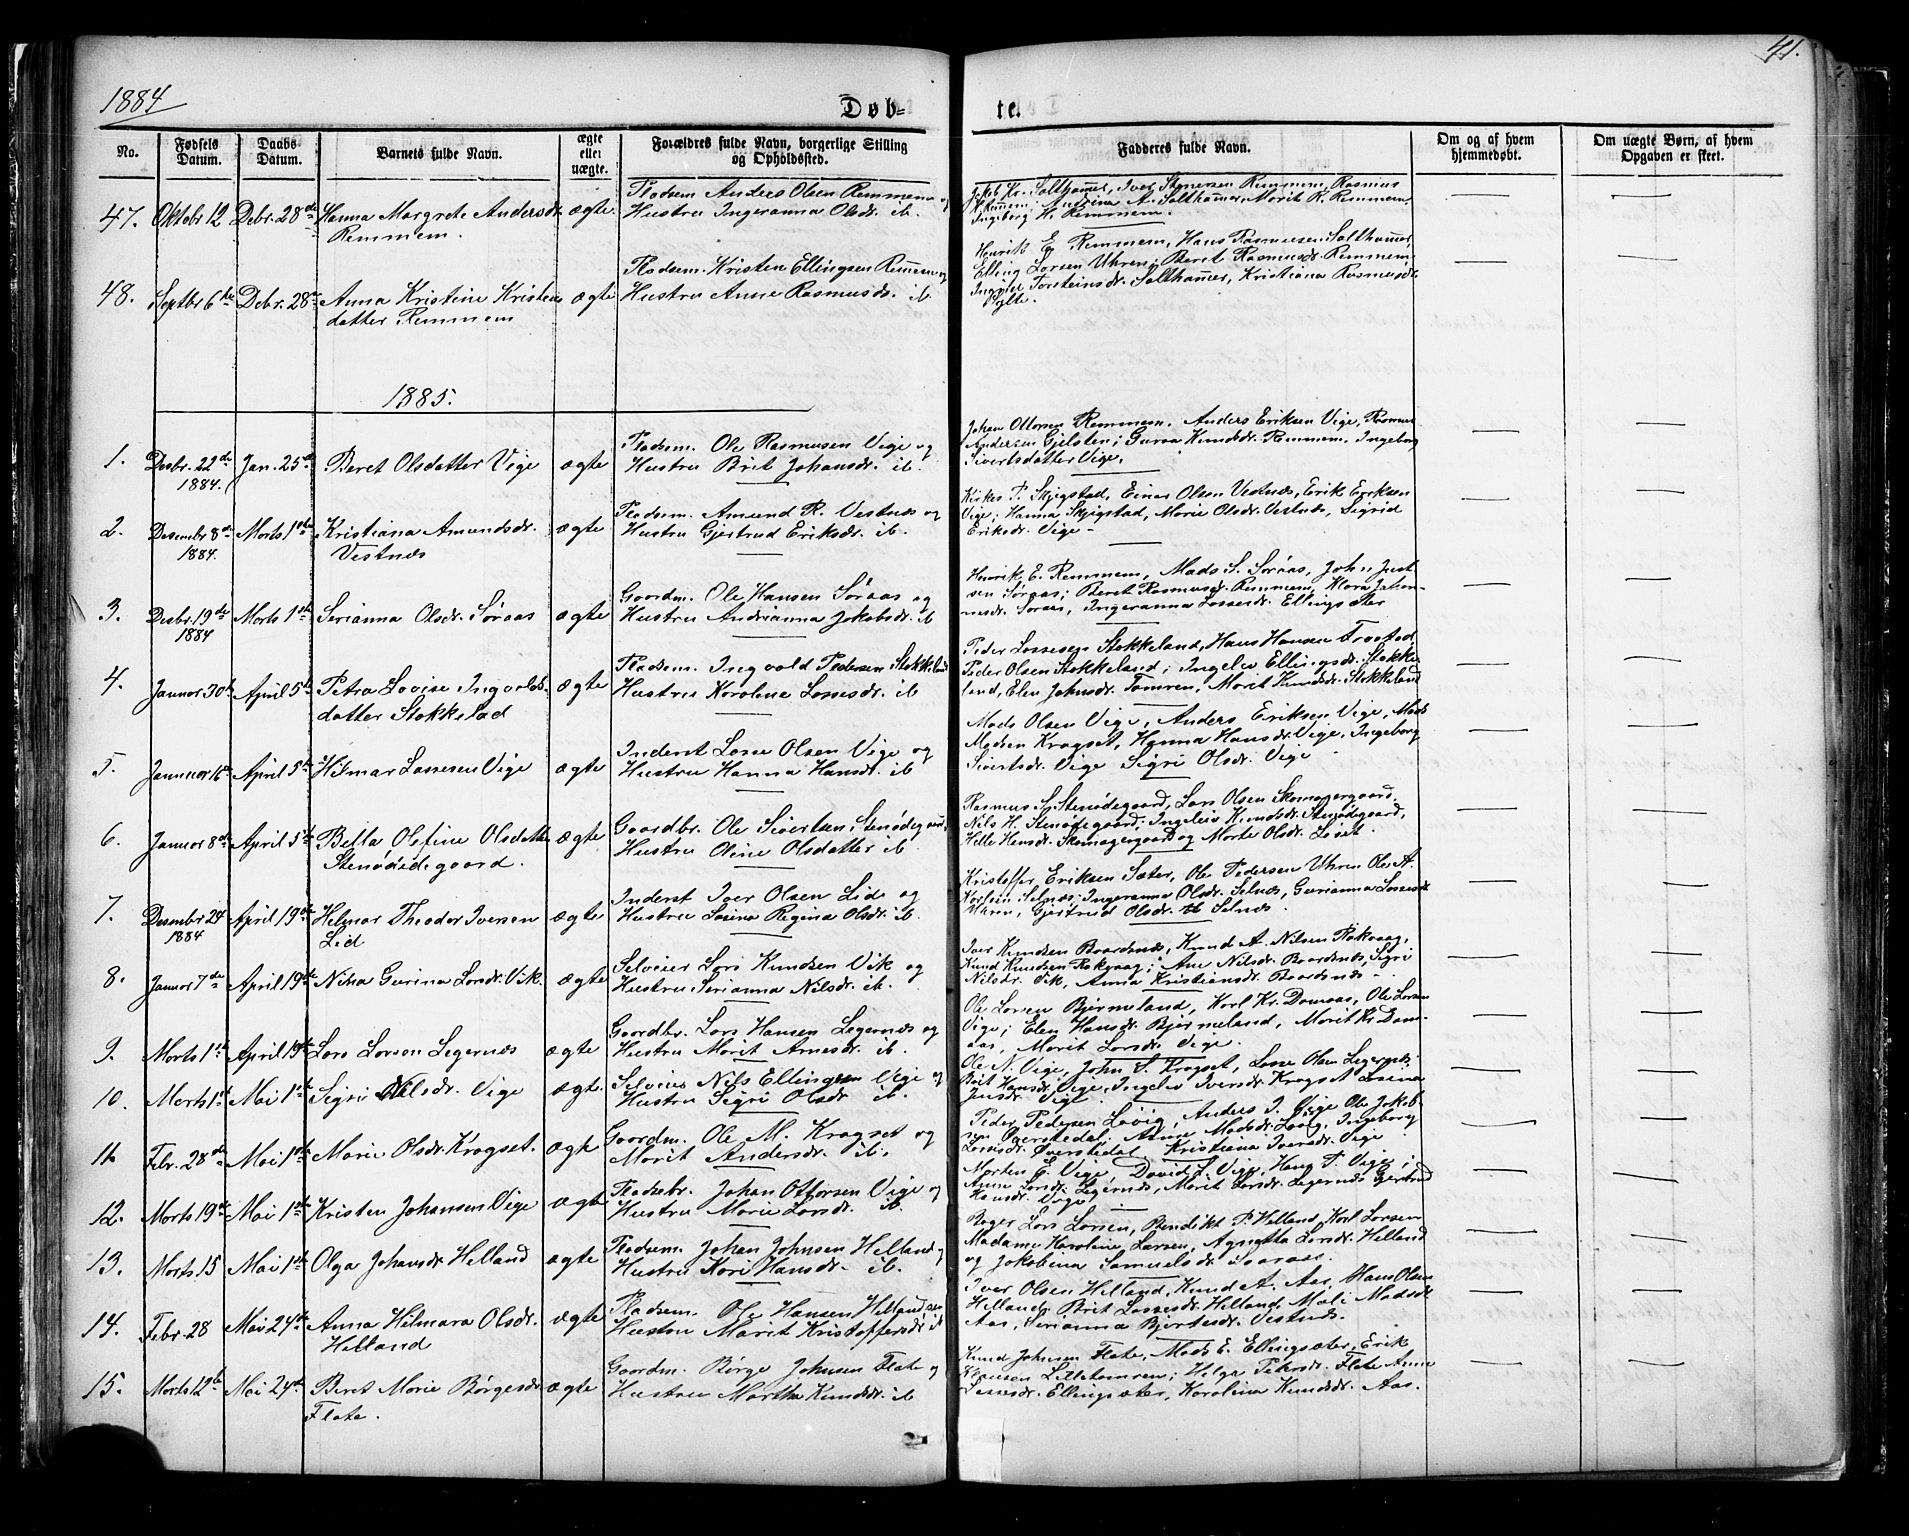 1884
Døb-
te.
41.
No.
Fødsels Datum.
Daabs-Datum.
Barnets fulde Navn.
ægte eller uægte.
Forældres fulde Navn, borgerlige Stilling og Opholdssted.
Fadderes fulde Navn.
Om og af hvem hjemmedøbt.
Om uægte Børn, af hvem Opgaven er skeet.
47. Oktobr 12 Debr. 28de Hanna Margrete Andersdr. ægte Pladsem. Anders Olsen Remmem og
Remmem. Hustru Ingeranna Olsdr. ib.
Jakob Kr. Salthamer, Iver Remmem, Rasmus
Remmem; Andrina A. Salthamer, Marit R. Remmem,
Ingeborg H. Remmem.
48. Septbr 6te Debr. 28de Anna Kristine Kristens ægte Pladsem. Kristen Ellingsen Remem og
datter Remmem Hustru Anne Rasmusdr. ib
Henrik E. Remmem, Hans Rasmusen Salthamer,
Elling Larsen Uhren; Beret Rasmusdr. Remmem
Torsteinsdr. Salthamer, Kristiana Rasmusdr.
1885.
1. Desbr. 22de 1884. Jan. 25de Beret Olsdatter Vige ægte Pladsem. Ole Rasmusen Vige og
Hustru Brit Johansdr. ib.
Johan Ottersen Remmem. Anders Eriksen Vige, Rasmus
Andersen Gjelsten; Guraa Knudsdr. Remmem. Ingeborg
Sivertsdatter Vige.
2. Desembr 8de 1884. Marts 1ste Kristiana Amundsdr. Vestnæs ægte Pladsem. Amund R. Vestnæs og
Hustru Gjertrud Eriksdr. ib.
P. Skjegstad, Einar Olsen Vestnæs, Erik Eriksen
Vige; Hanna Skjegstad, Marie Olsdr. Vestnæs, Sigrid
Eriksdr. Vige
3. Desbr. 19de 1884 Marts 1ste Serianna Olsdr. Søraas ægte Gaardm. Ole Hansen Søraas og
Hustru Andrianna Jakobsdr. ib
Henrik E. Remmem, Mads S. Søraas, John
sen Søraas; Beret Rasmusdr. Remmem, Johan-
nesdr. Søraas, Ingeranna Lassesdr. Ellingsæter
4. Januar 30te April 5te Petra Lovise Ingvalds ægte Pladsem. Ingvald Pedersen Stokkeland
datter Stokkelad Hustru Karoline Lassesdr. ib
Peder Lassesen Stokkeland, Hans Hansen
Peder Olsen Stokkeland; Ingelev Ellingsdr. Stokke-
land, Elen Johnsdr. Tomren, Marit Knudsdr. Stokkeland
5. Januar 16de April 5te Hilmar Lassesen Vige ægte Inderst Lasse Olsen Vige og
Hustru Hanna Hansdr. ib
Mads Olsen Vige, Anders Eriksen Vige, Mads
Madsen Kragset, Hanna Hansdr. Vige, Ingeborg
Sivertsdr. Vige Sigri Olsdr. Vige
6. Januar 8de April 5te Bella Olefine Olsdatter ægte Gaardbr. Ole Sivertsen Stenødegaard,
Stenødegaard. Hustru Oline Olsdatter ib.
Rasmus S. Stenødegaard, Lars Olsen Skomagergaard.
Nils H. Stenødegaard; Ingelev Knudsdr. Stenødegaard,
Helle Hansdr. Skomagergaard og Marte Olsdr.
7. Desembr 24 1884 April 19de Helmar Theodor Iversen Lid ægte Inderst Iver Olsen Lid og
Hustru Regina Olsdr. ib.
Kristoffer Eriksen Sæter, Ole Pedersen Uhren Ole A.
Karlsen Selnæs; Ingeranna Olsdr. Selnæs, Gurianna Lassesdr
Uhren, Gjertrud Olsdr. Selnæs.
8. Januar 7de April 19de Nikka Gurina Larsdr. Vik. ægte Selveier Lars Knudsen Vik og
Hustru Serianna Nilsdr. ib.
Iver Knudsen Baardsnæs, Knud A. Nilsen Rakvaag,
Knud Knudsen Rakvaag; Ane Nilsdr. Baardsnæs, Sigri
Nilsdr. Vik, Anna Kristiansdr. Baardsnæs
9. Marts 1ste April 19de Lars Larsen Legernæs ægte Gaardbr. Lars Hansen Legernæs og
Hustru Marit Arnesdr. ib.
Ole Larsen Bjermeland, Karl Kr. Damaas, Ole Larsen
Vige; Elen Hansdr. Bjermeland, Marit Kr. Dam-
aas, Marit Larsdr. Vige.
10. Marts 1ste Mai 1ste Sigri Nilsdr. Vige ægte. Selveier Nils Ellingsen Vige og
Hustru Sigri Olsdr ib.
Ole N. Vige, John S. Kragset, Lasse Olsen Legernæs;
Brit Hansdr. Vige, Ingelev Iversdr. Kragset
Jensdr. Vige
11. Febr. 28de Mai 1ste Marie Olsdr. Kragset. ægte Gaardm. Ole M. Kragset og
Marit Andersdr. ib.
Peder Pedersen Løvig, Anders J. Vige Ole Jakob-
sen Øverstedal. Anne Madsdr. Løvig, Ingeborg
Larsdr. Øverstedal, Kristiana Iversdr. Vige
12. Marts 19de Mai 1ste Kristen Johansen Vige ægte Pladsebr. Johan Ottersen Vige og
Hustru Marie Larsdr. ib.
Morten E. Vige, David L. Vige, Hans P. Vige;
Anne Larsdr. Legernæs, Marit Larsdr. Legernæs Gjertrud
Hansdr. Vige
13. Marts 15 Mai 1ste Olga Johansdr. Helland ægte Pladsem. Johan Johnsen Helland og
Hustru Kari Hansdr. ib.
Lars Larsen, Bendikt P. Helland, Karl Larsen
Madame Karoline Larsen, Agnetha Larsdr. Helland
og Jakobina Samuelsdr.
14. Febr. 28 Mai 24de Anna Hilmara Olsdr. Helland ægte Pladsem. Ole Hansen Helland
Hustru Marit Kristoffersdr. ib
Iver Olsen Helland, Knud A. Aas, Hans Olsen
Helland; Brit Lassesdr. Helland, Mali Madsdr
Aas, Serianna Bjertesdr. Vestnæs.
15. Marts 12te Mai 24de Beret Marie Børgesdr. Flate. ægte Gaardm. Børge Johnsen Flate og
Hustru Martha Knudsdr. ib
Knud Johnsen Flate, Mads E. Ellingsæter, Erik
Lilletomren; Helga Pedersdr. Flate Anne
Lassesdr. Ellingsæter, Karolina Knudsdr. Aas.